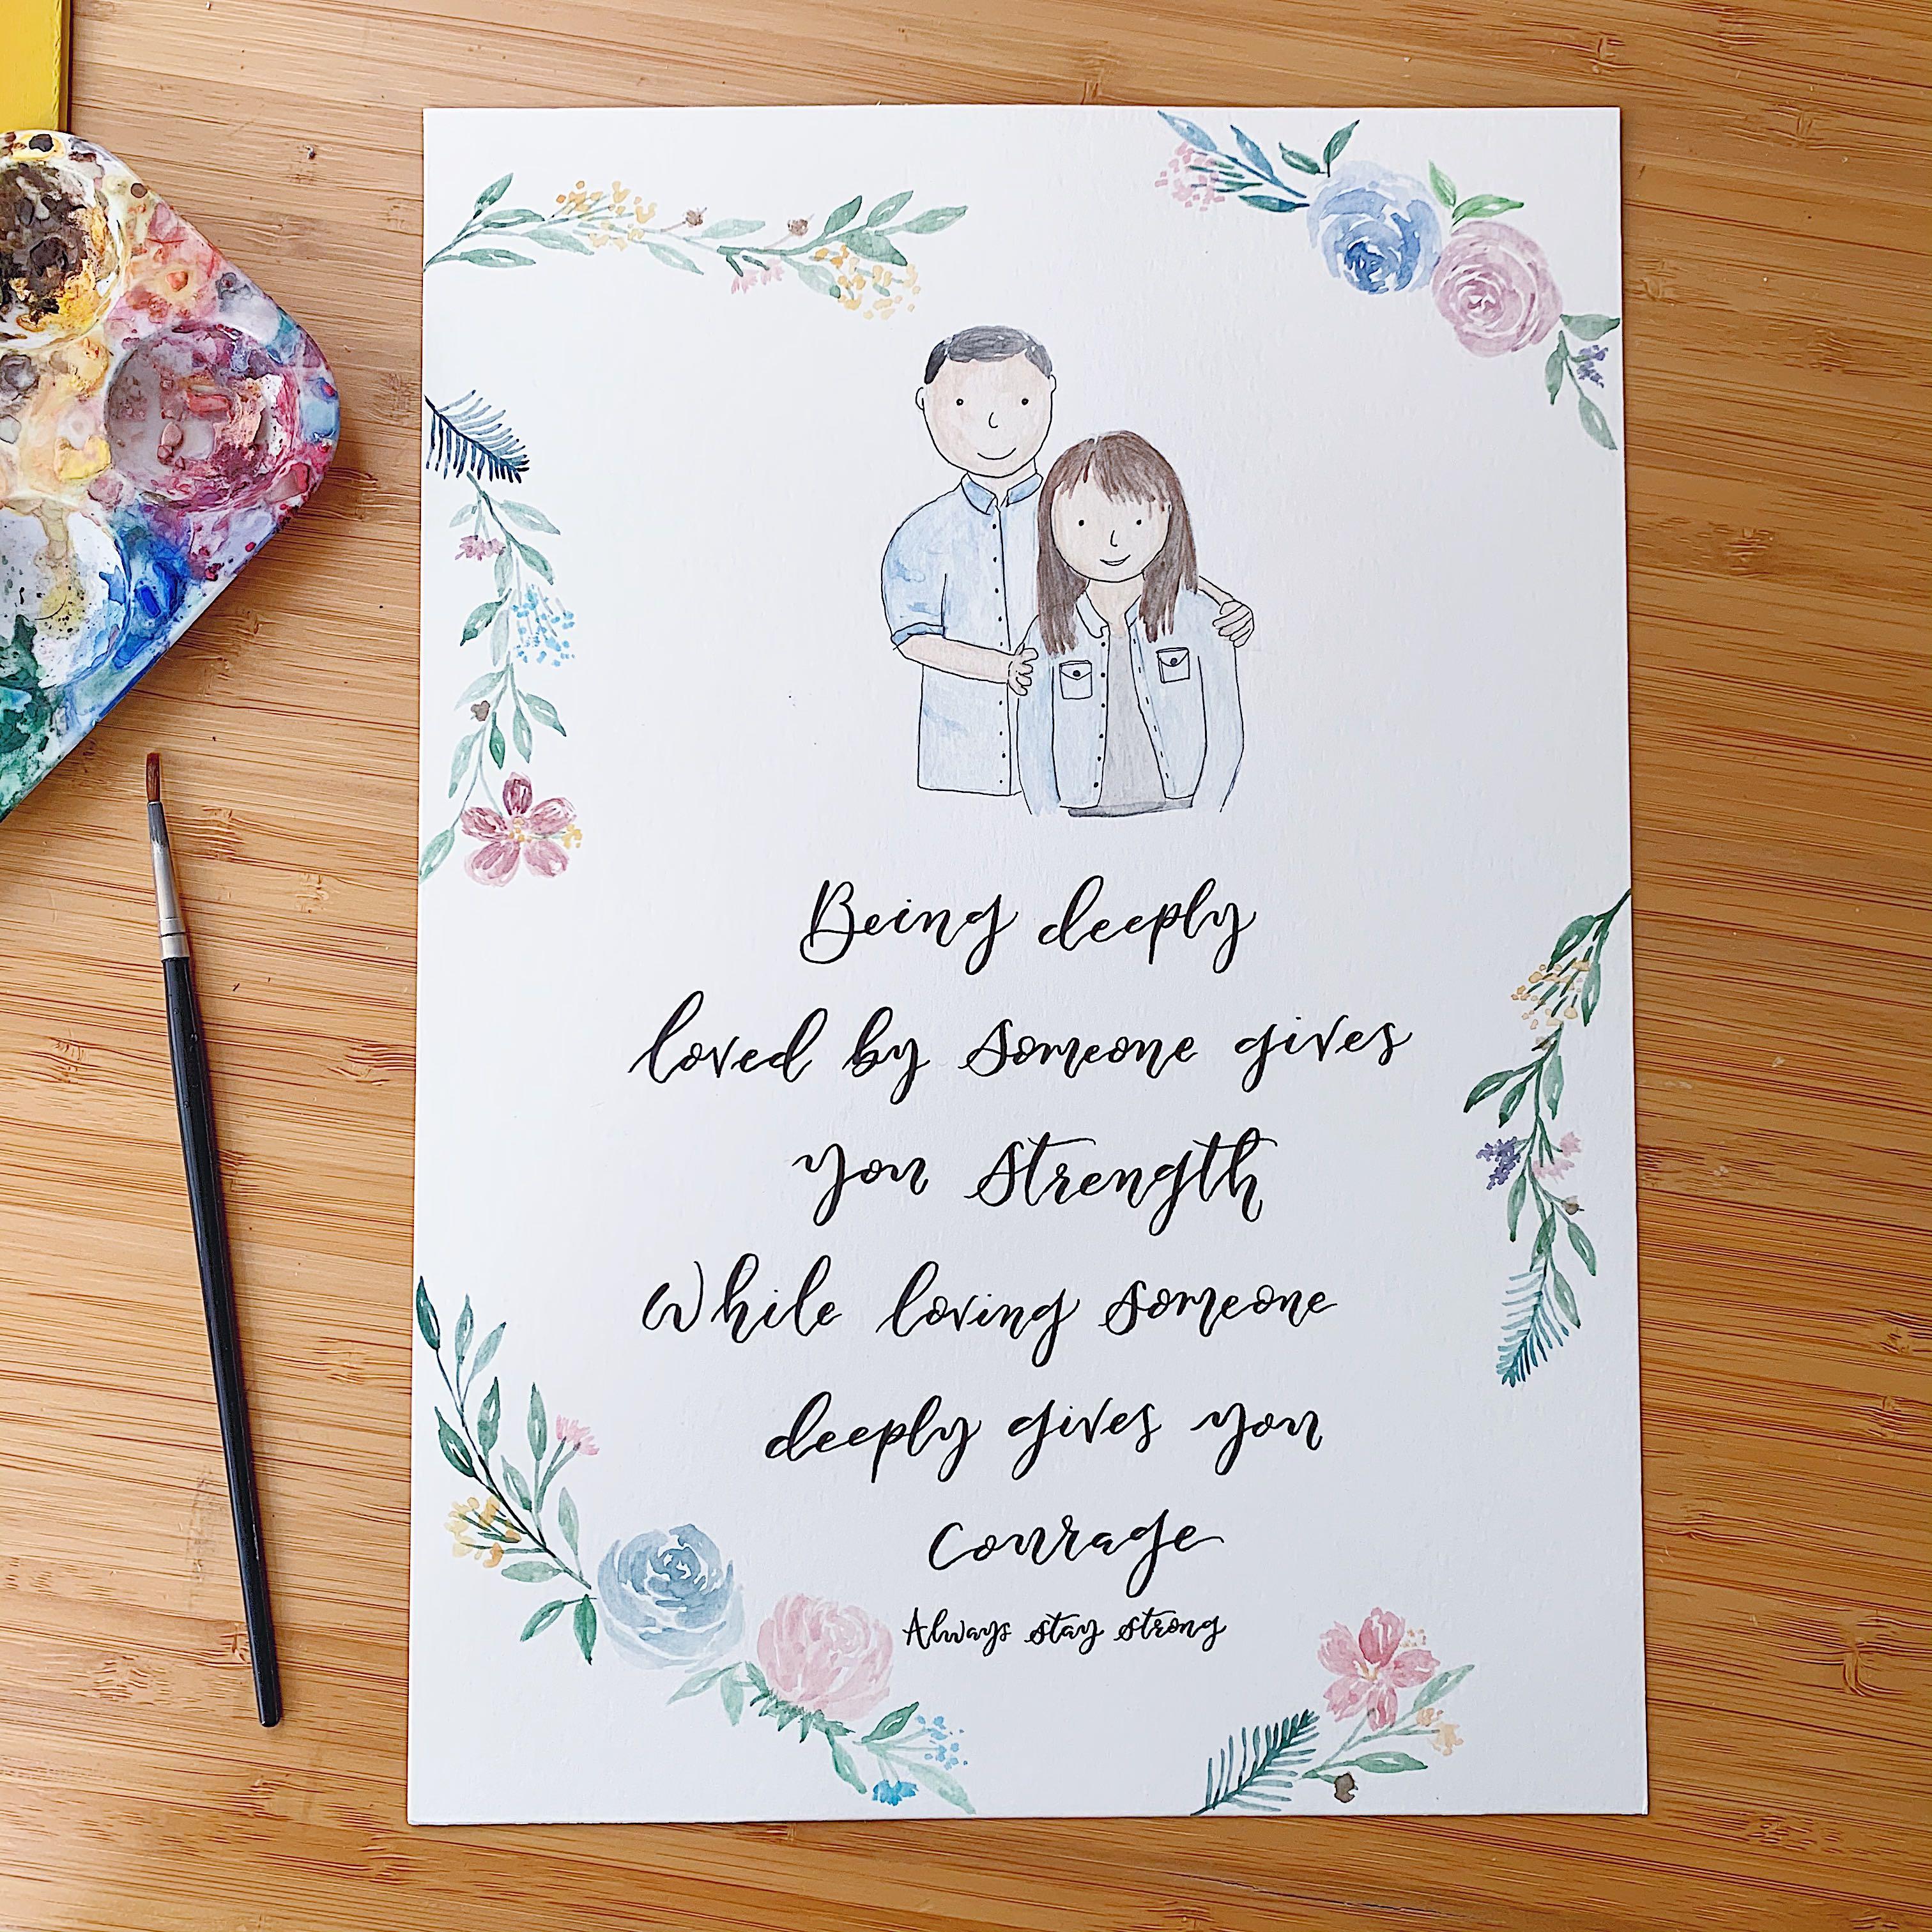 Being deeply
loved by someone gives
you strength
While loving someone
deeply gives you
courage
Always stay strong